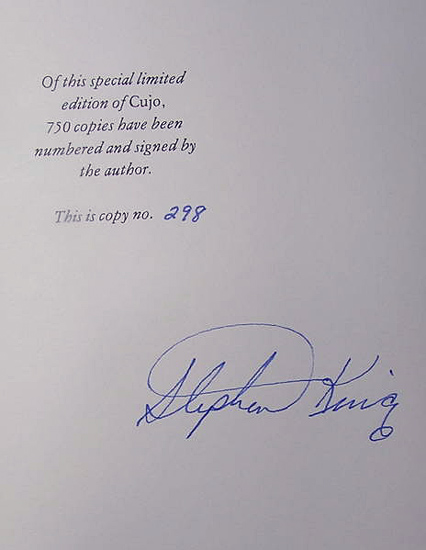 Of this special limited
edition of Cujo,
750 copies have been
numbered and signed by
the author.
This is copy no. 298
Stephen King